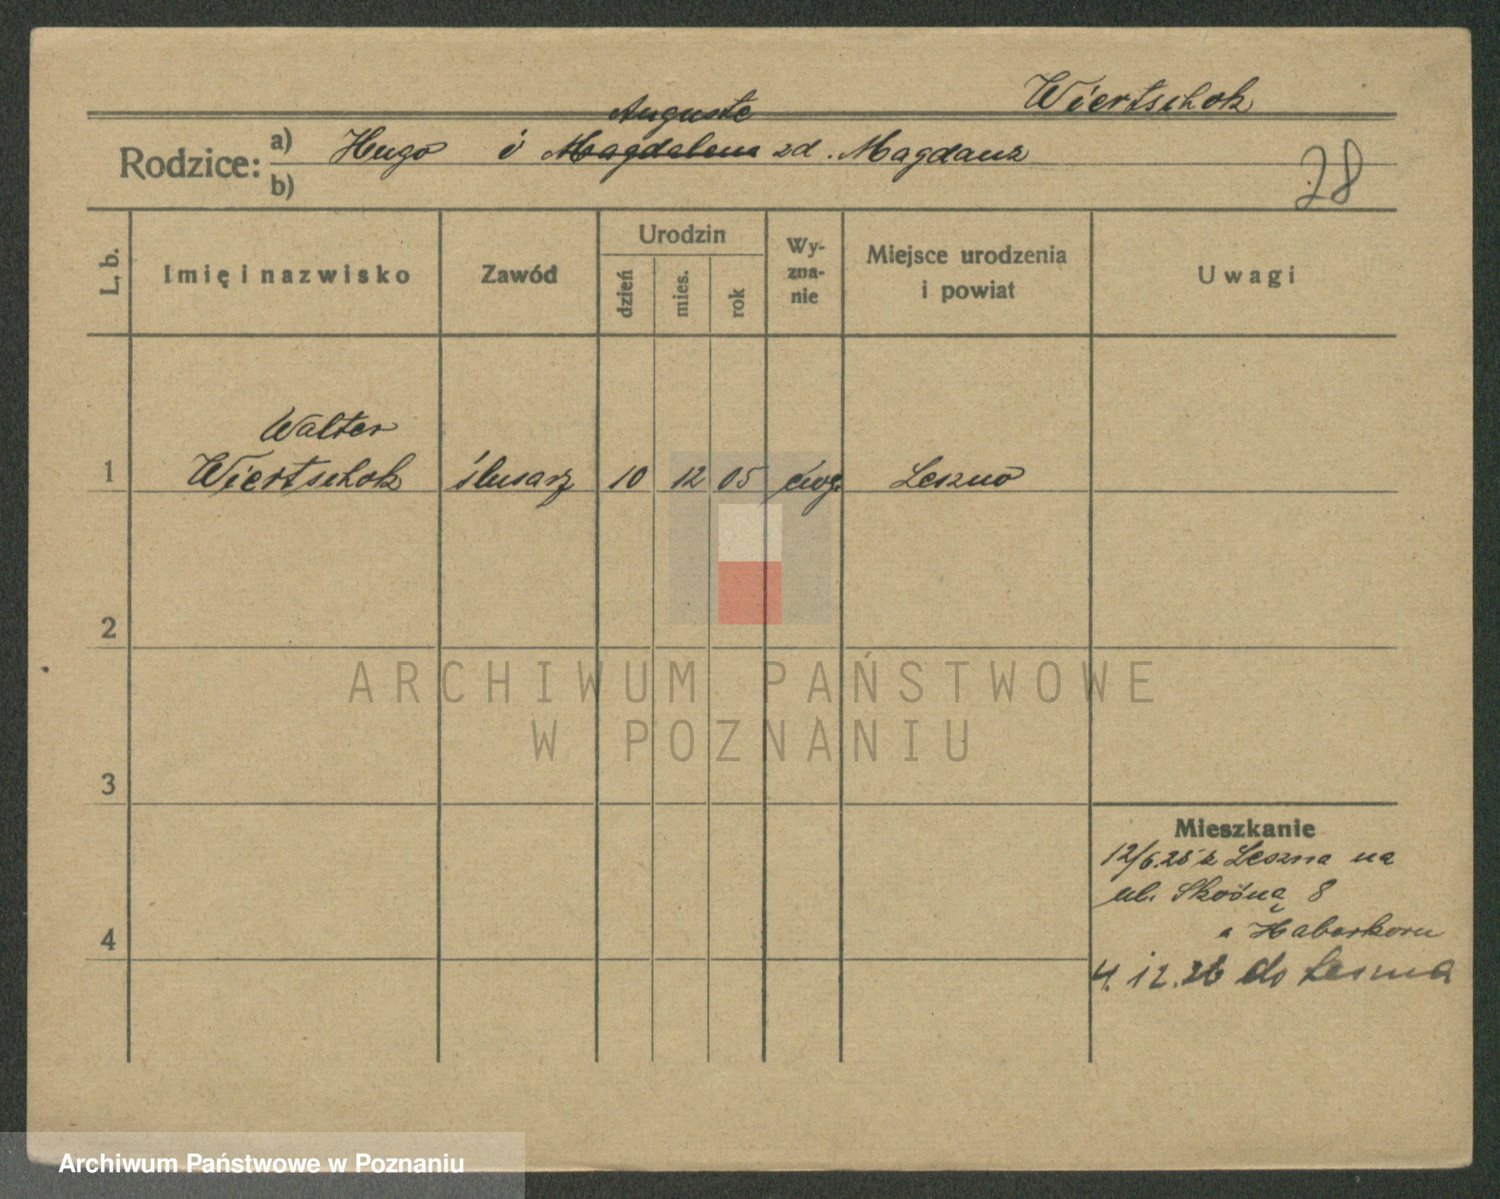 Wiertschok
Auguste
Rodzice: a) Hugo i Magdalena zd. Magdanz
b)
28
L. b.
Imię i nazwisko
Zawód
Urodzin
dzień
mies.
rok
Wy-
zna-
nie
Miejsce urodzenia
i powiat
Uwagi
Walter
1 Wiertschok ślusarz 10 12 05 ewg. Leszno
2
ARCHIWUM PAŃSTWOWE
W POZNANIU
3
Mieszkanie
12/6.25 z Leszna na
ul. Skośną 8
Haberkorn
4
4.12.26 do Leszna
Archiwum Państwowe w Poznaniu